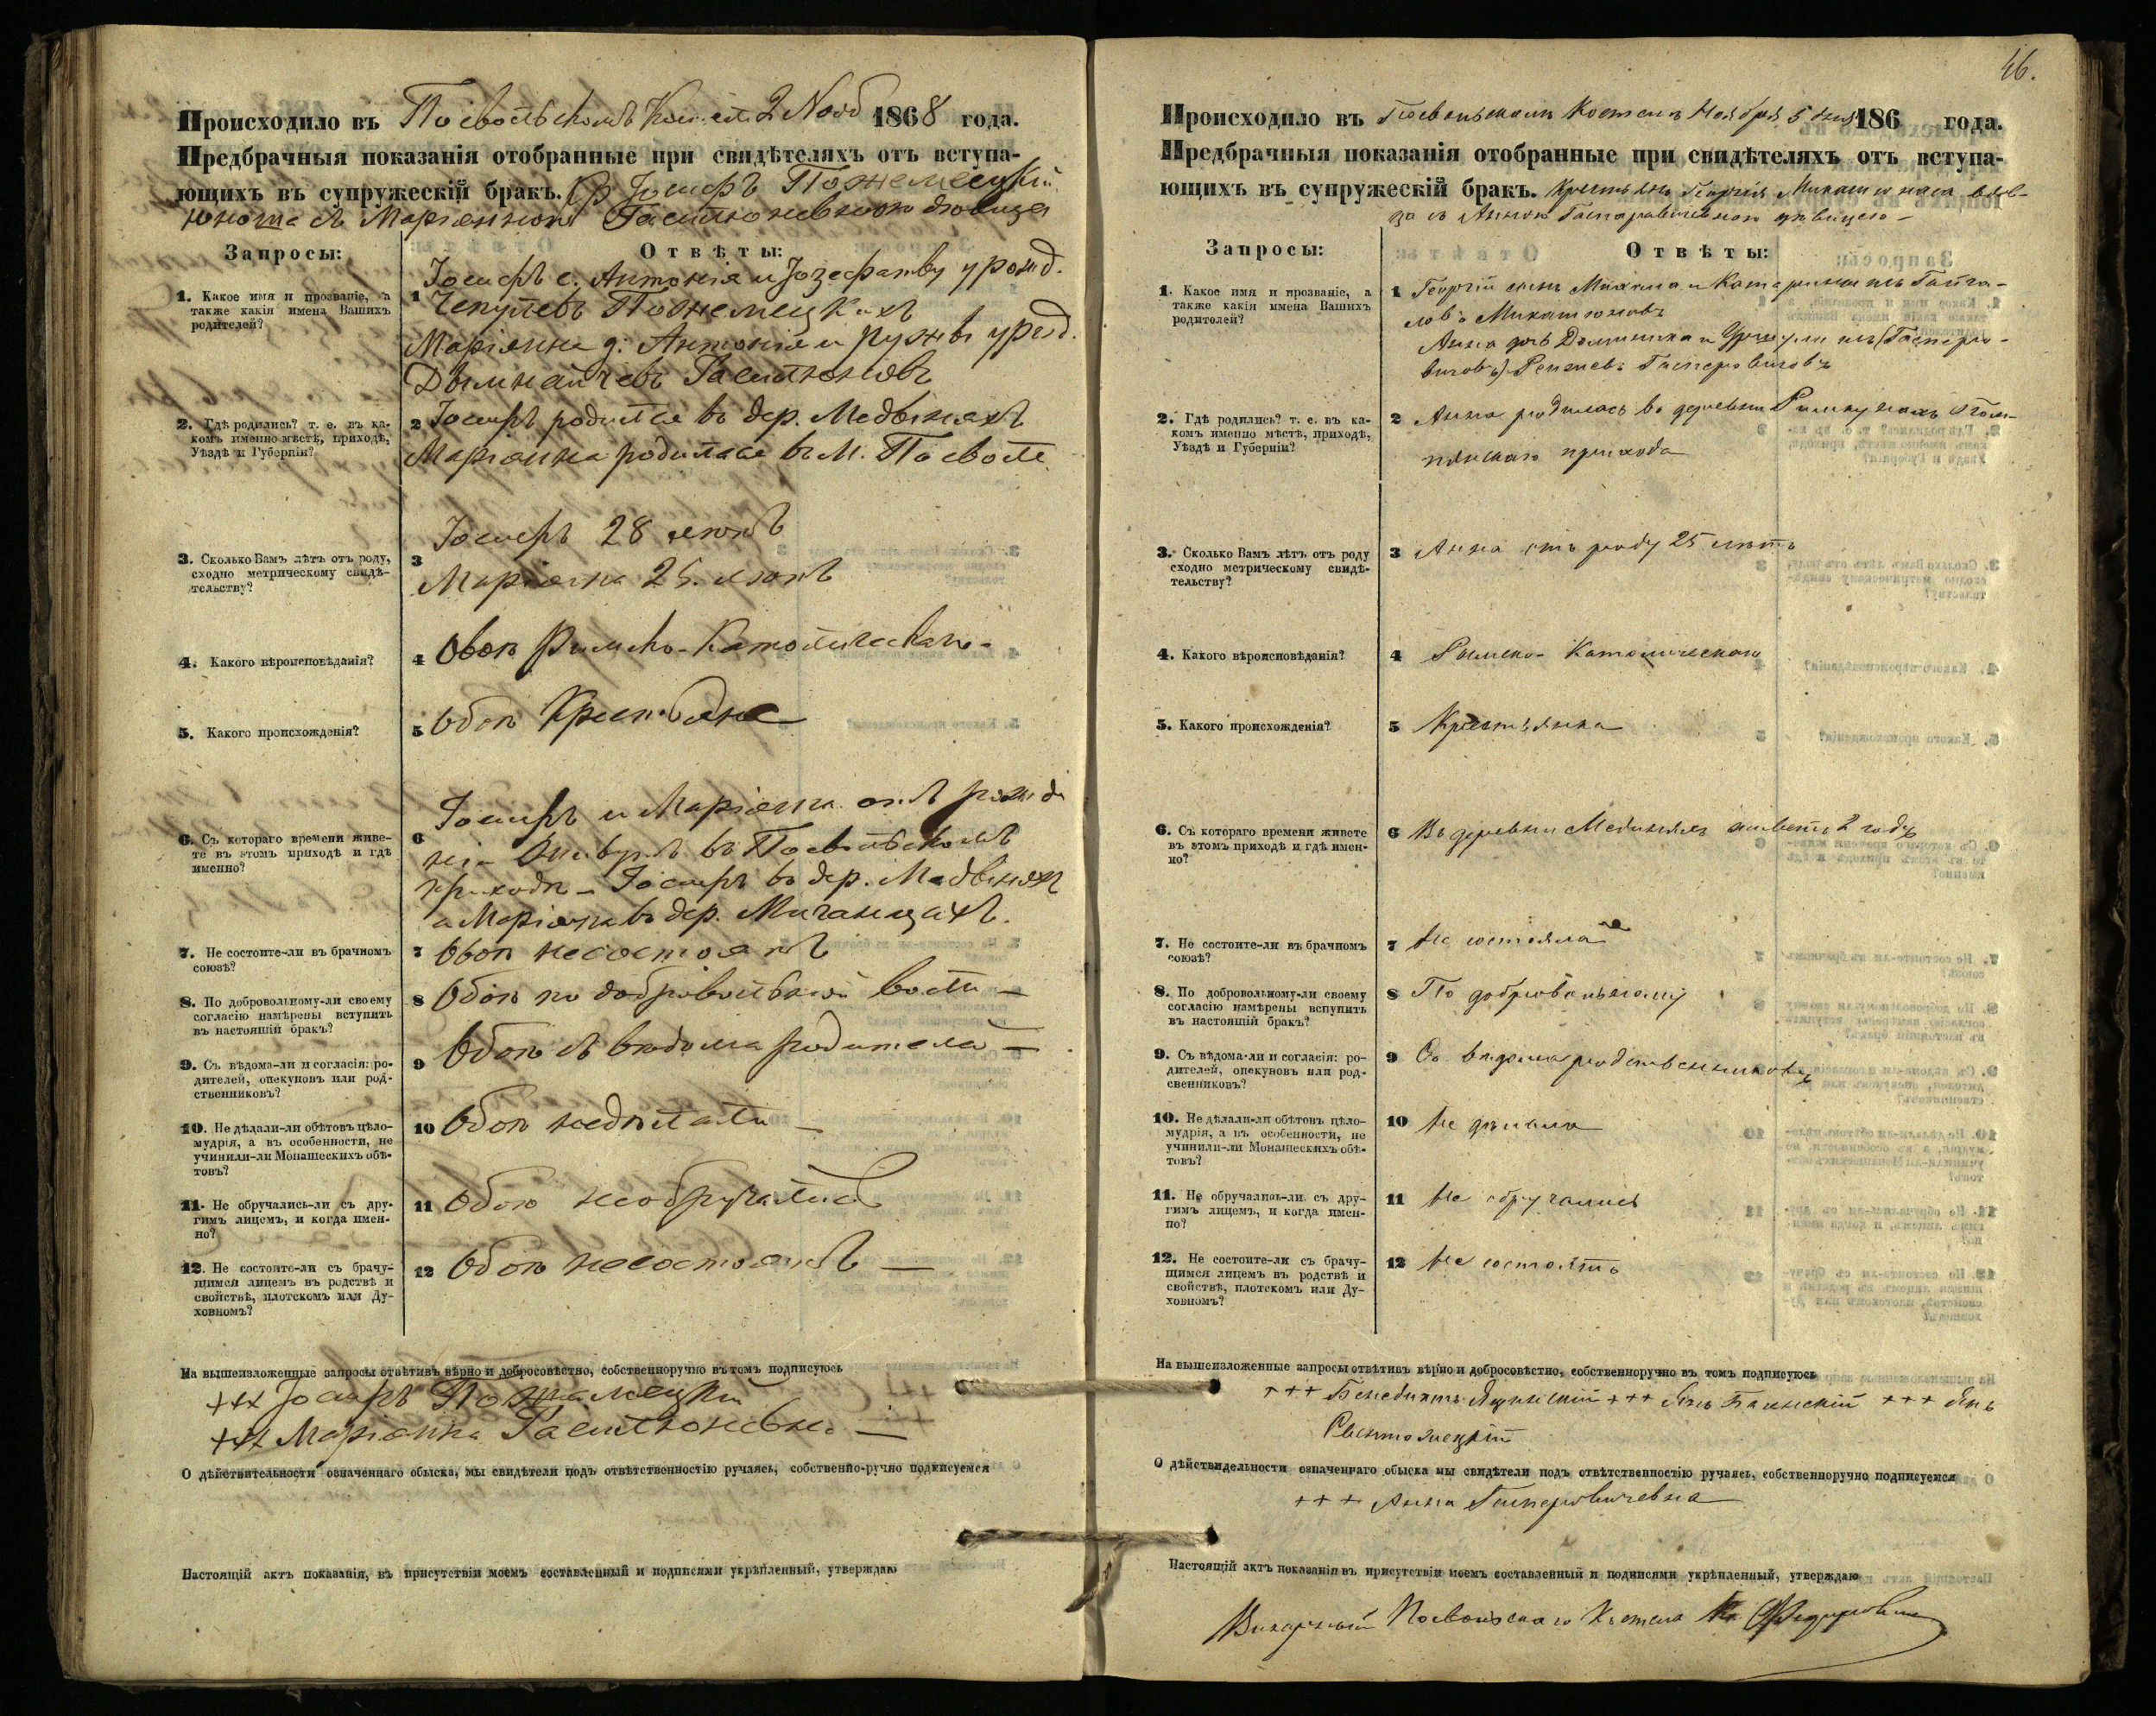 Происходило въ Посвольскомъ Кост. 2 Нояб 1868 года.
Предбрачныя показанія отобранные при свидѣтеляхъ отъ вступа-
ющихъ въ супружескій бракъ. Іосифъ Пожемецкій
юноша съ Маріанною дѣвицею
Запросы:
Отвѣты:
1. Какое имя и прозваніе, а
также какія имена Вашихъ
родителей?
1 Іосифъ с. Антонія и Іозефаты урожд.
Пожемецкихъ
Маріянна д. Антонія и Ружы урожд.
2. Гдѣ родились? т. е. въ ка-
комъ именно мѣстѣ, приходѣ,
Уѣздѣ и Губерніи?
2 Іосифъ родился въ дер. Медвинахъ
Маріянна родилася въ М. Посволѣ
3. Сколько Вамъ лѣтъ отъ роду,
сходно метрическому свидѣ-
тельству?
3 Іосифъ 28 лѣтъ
Маріянна 25 лѣтъ
4. Какого вѣроисповѣданія?
4 Обоѣ Римско-Католическаго-
5. Какого происхожденія?
5 Обоѣ Крестьяне
6. Съ котораго времени живе-
те въ этомъ приходѣ и гдѣ
именно?
6 Іосифъ и Маріянна отъ рожде
нія въ Посвольскомъ
приходѣ - Іосифъ въ дер. Медвиняхъ
а Маріянна въ дер.
7. Не состоите-ли въ брачномъ
союзѣ?
7 Обоѣ несостоятъ
8. По добровольному-ли своему
согласію намѣрены вступить
въ настоящій бракъ?
8 Обоѣ по добровольной воли —
9. Съ вѣдома-ли и согласія: ро-
дителей, опекуновъ или род-
ственниковъ?
9 Обоѣ съ вѣдома родителей —
10. Не дѣлали-ли обѣтовъ цѣло-
мудрія, а въ особенности, не
учинили-ли Монашескихъ обѣ-
товъ?
10 Обоѣ недѣлали —
11. Не обручались-ли съ дру-
гимъ лицемъ, и когда имен-
но?
11 Обоѣ необручались
12. Не состоите-ли съ брачу-
щимся лицемъ въ родствѣ и
свойствѣ, плотскомъ или Ду-
ховномъ?
12 Обоѣ несостоятъ —
На вышеизложенные запросы отвѣтивъ вѣрно и добросовѣстно, собственноручно въ томъ подписуюсь
+++ Іосифъ Пожемецкій
+++ Маріянна —
О дѣйствительности означеннаго обыска, мы свидѣтели подъ отвѣтственностію ручаясь, собственно-ручно подписуемся
Настоящій актъ показанія, въ присутствіи моемъ составленный и подписями укрѣпленный, утверждаю
46.
Происходило въ Посвольскомъ Костелѣ Ноября 5 дня 186 года.
Предбрачныя показанія отобранные при свидѣтеляхъ отъ вступа-
ющихъ въ супружескій бракъ. Крестьян Георгія вдов-
ца съ Анною Гаспаровичевною дѣвицею —
Запросы:
Отвѣты:
1. Какое имя и прозваніе, а
также какія имена Вашихъ
родителей?
1 Георгій сынъ Михаила и Катарины изъ
Анна дочь Доминика и Уршули изъ
Гаспаровичовъ
2. Гдѣ родились? т. е. въ ка-
комъ именно мѣстѣ, приходѣ,
Уѣздѣ и Губерніи?
2 Анна родилась въ деревни
прихода
3. Сколько Вамъ лѣтъ отъ роду
сходно метрическому свидѣ-
тельству?
3 Анна отъ роду 25 лѣтъ
4. Какого вѣроисповѣданія?
4 Римско-Католическаго
5. Какого происхожденія?
5 Крестьянка
6. Съ котораго времени живете
въ этомъ приходѣ и гдѣ имен-
но?
6 Въ деревни живетъ 2 года
7. Не состоите-ли въ брачномъ
союзѣ?
7 Не состояла
8. По добровольному-ли своему
согласію намѣрены вспупить
въ настоящій бракъ?
8 По добровольному
9. Съ вѣдома-ли и согласія: ро-
дителей, опекуновъ или род-
свенниковъ?
9 Съ вѣдома родственниковъ
10. Не дѣлали-ли обѣтовъ цѣло-
мудрія, а въ особенности, не
учинили-ли Монашескихъ обѣ-
товъ?
10 Не дѣлала
11. Не обручались-ли съ дру-
гимъ лицемъ, и когда имен-
но?
11 Не обручались
12. Не состоите-ли съ брачу-
щимся лицемъ въ родствѣ и
свойствѣ, плотскомъ или Ду-
ховномъ?
12 Не состоятъ
На вышеизложенные запросы отвѣтивъ вѣрно и добросовѣстно, собственноручно въ томъ подписуюсь
+++ Бенедиктъ +++ Янъ +++ Янъ
О дѣйствидельности означеннаго обыска мы свидѣтели подъ отвѣтственностію ручаясь, собственноручно подписуемся
+++ Анна Гаспаровичевна
Настоящій актъ показанія въ присутствіи моемъ составленный и подписями укрѣпленный, утверждаю
Викарный Посвольскаго Костела